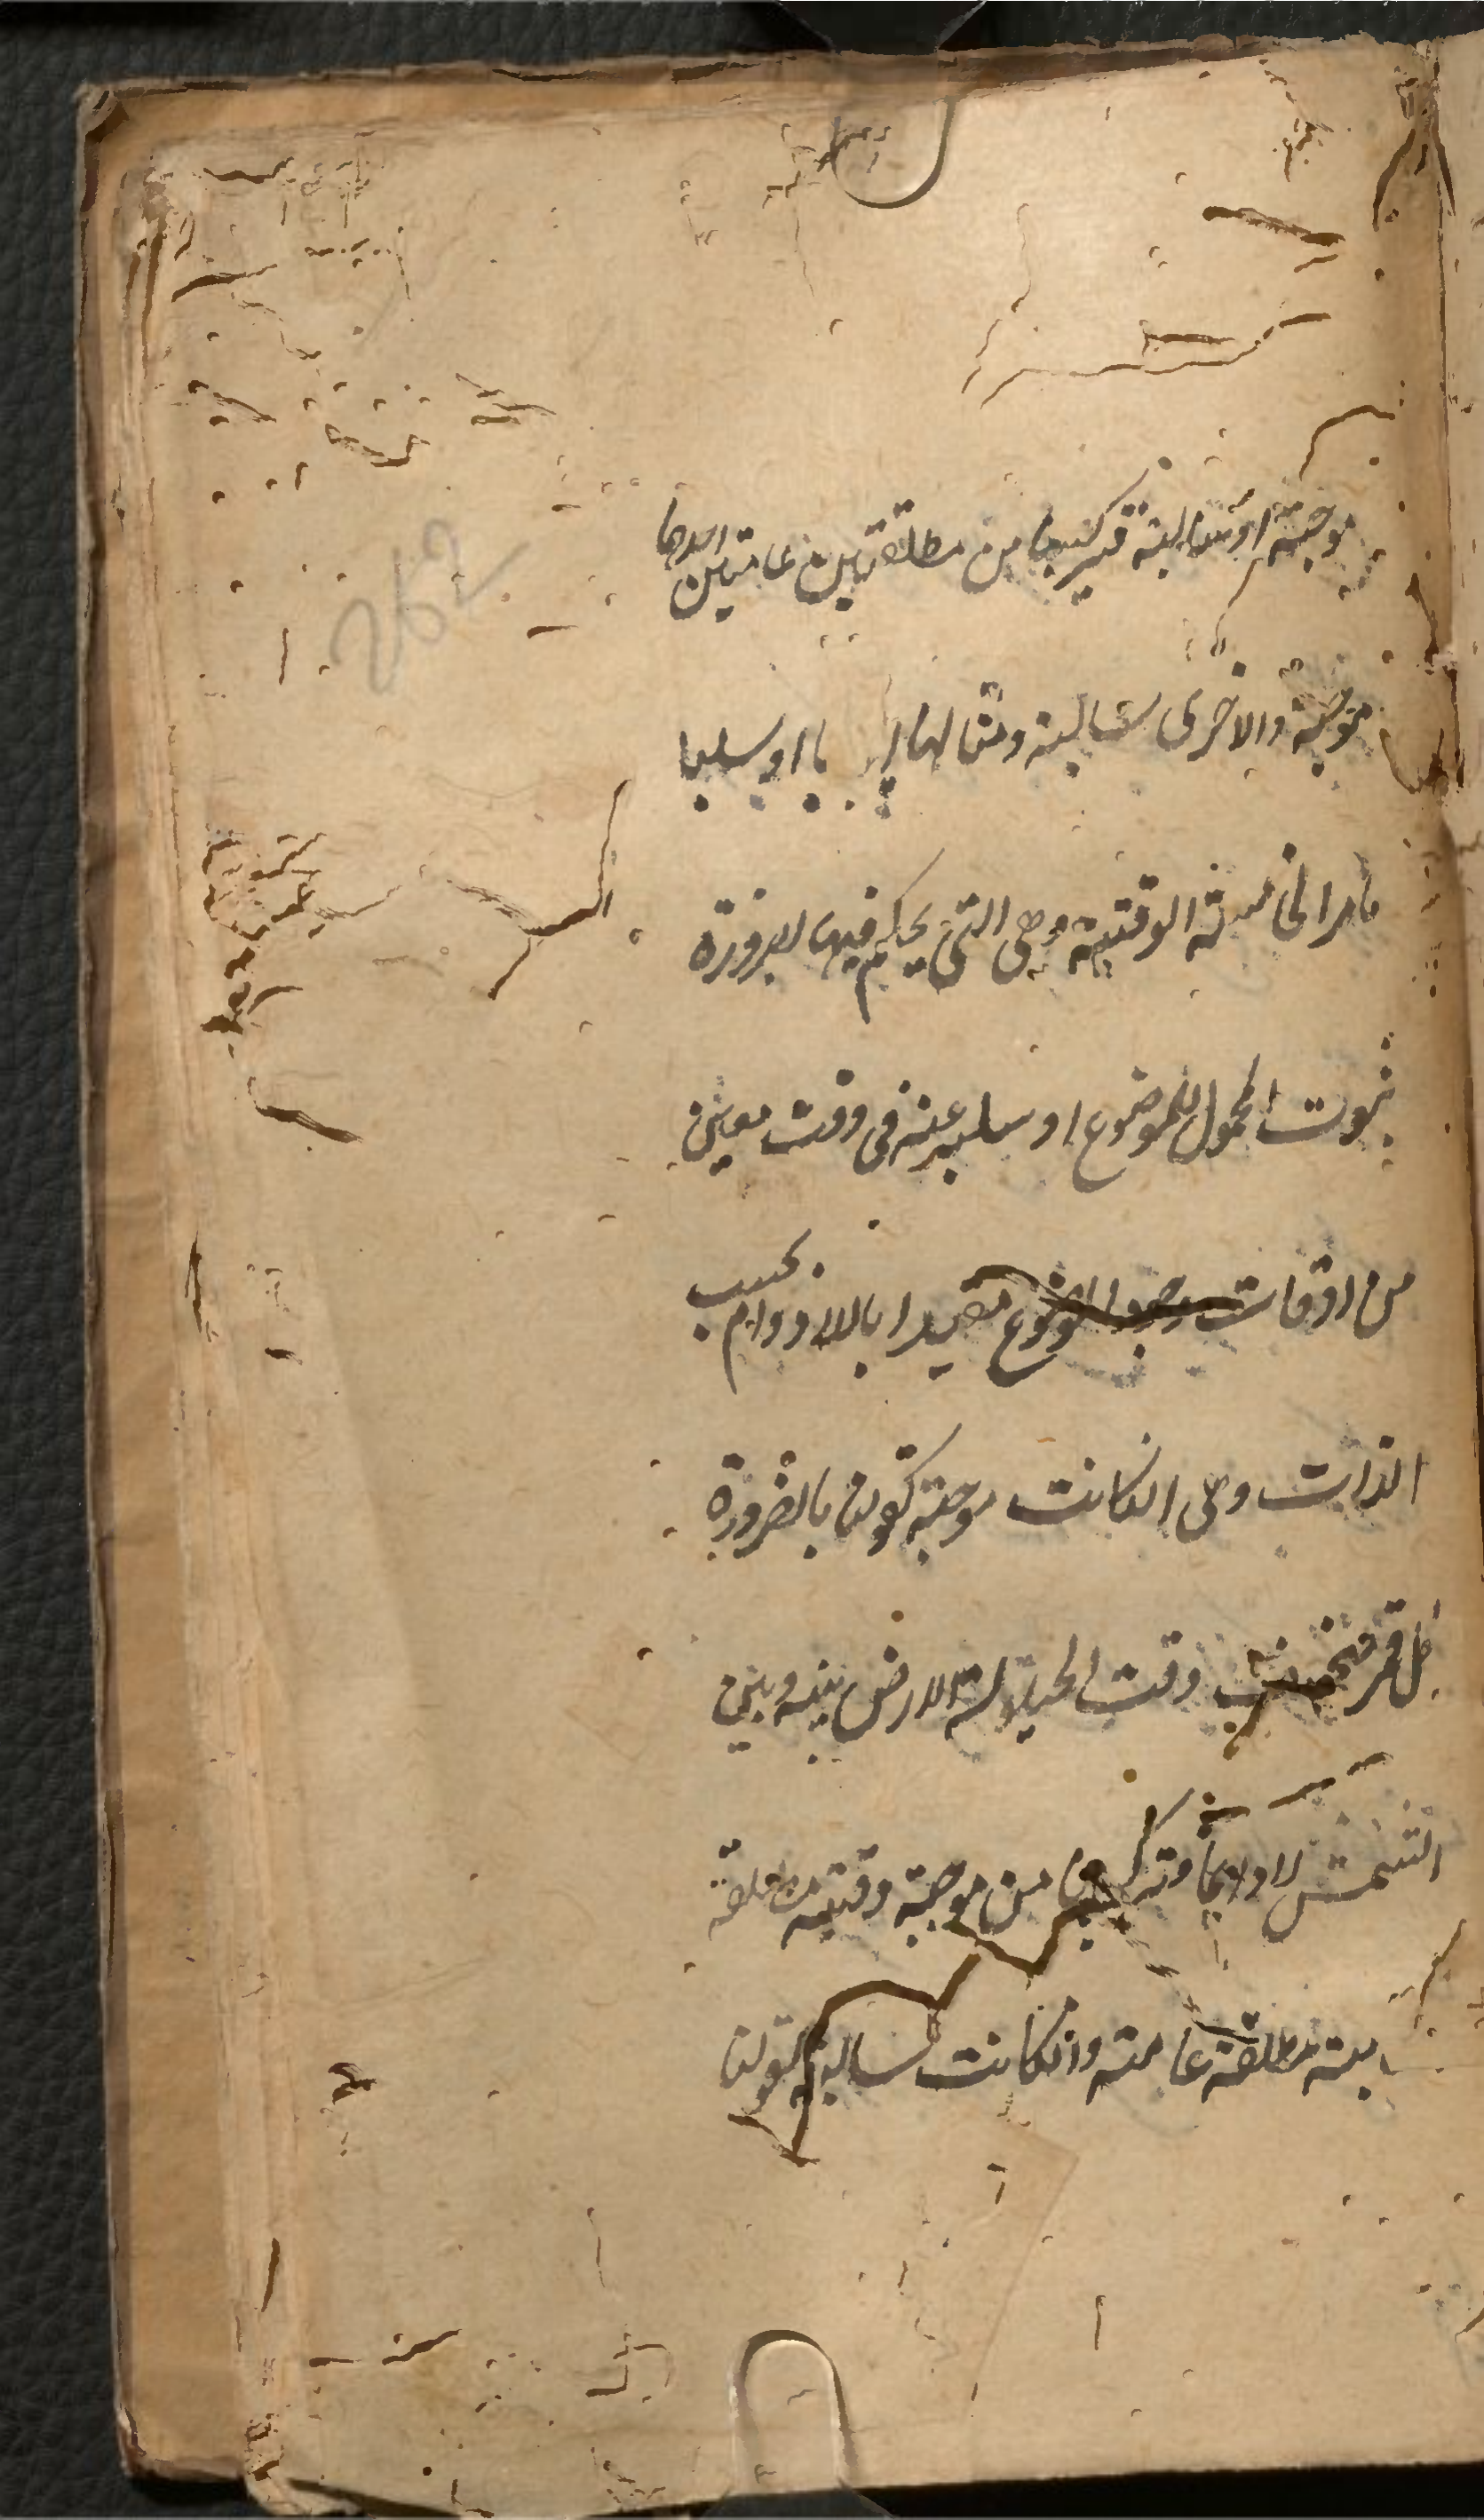 موجبة او سالبة فتركيبها من مطلقتين عامتين احدهما
موجبة والاخرى سالبة ومثالها ايجابا او سلبا
ما مر الخامسة الوقتية وهي التي يحكم فيها بالضرورة
ثبوت المحمول للموضوع او سلبه عنه في وقت معين
من اوقات وجود الموضوع مقيدا باللادوام بحسب
الذات وهي ان كانت موجبة كقولنا بالضرورة
كل قمر منخسف وقت الحيلولة الارض بينه وبين
الشمس لا دايما فتركيبها من موجبة وقتية مطلقة
سالبة مطلقة عامة وان كانت سالبة كقولنا